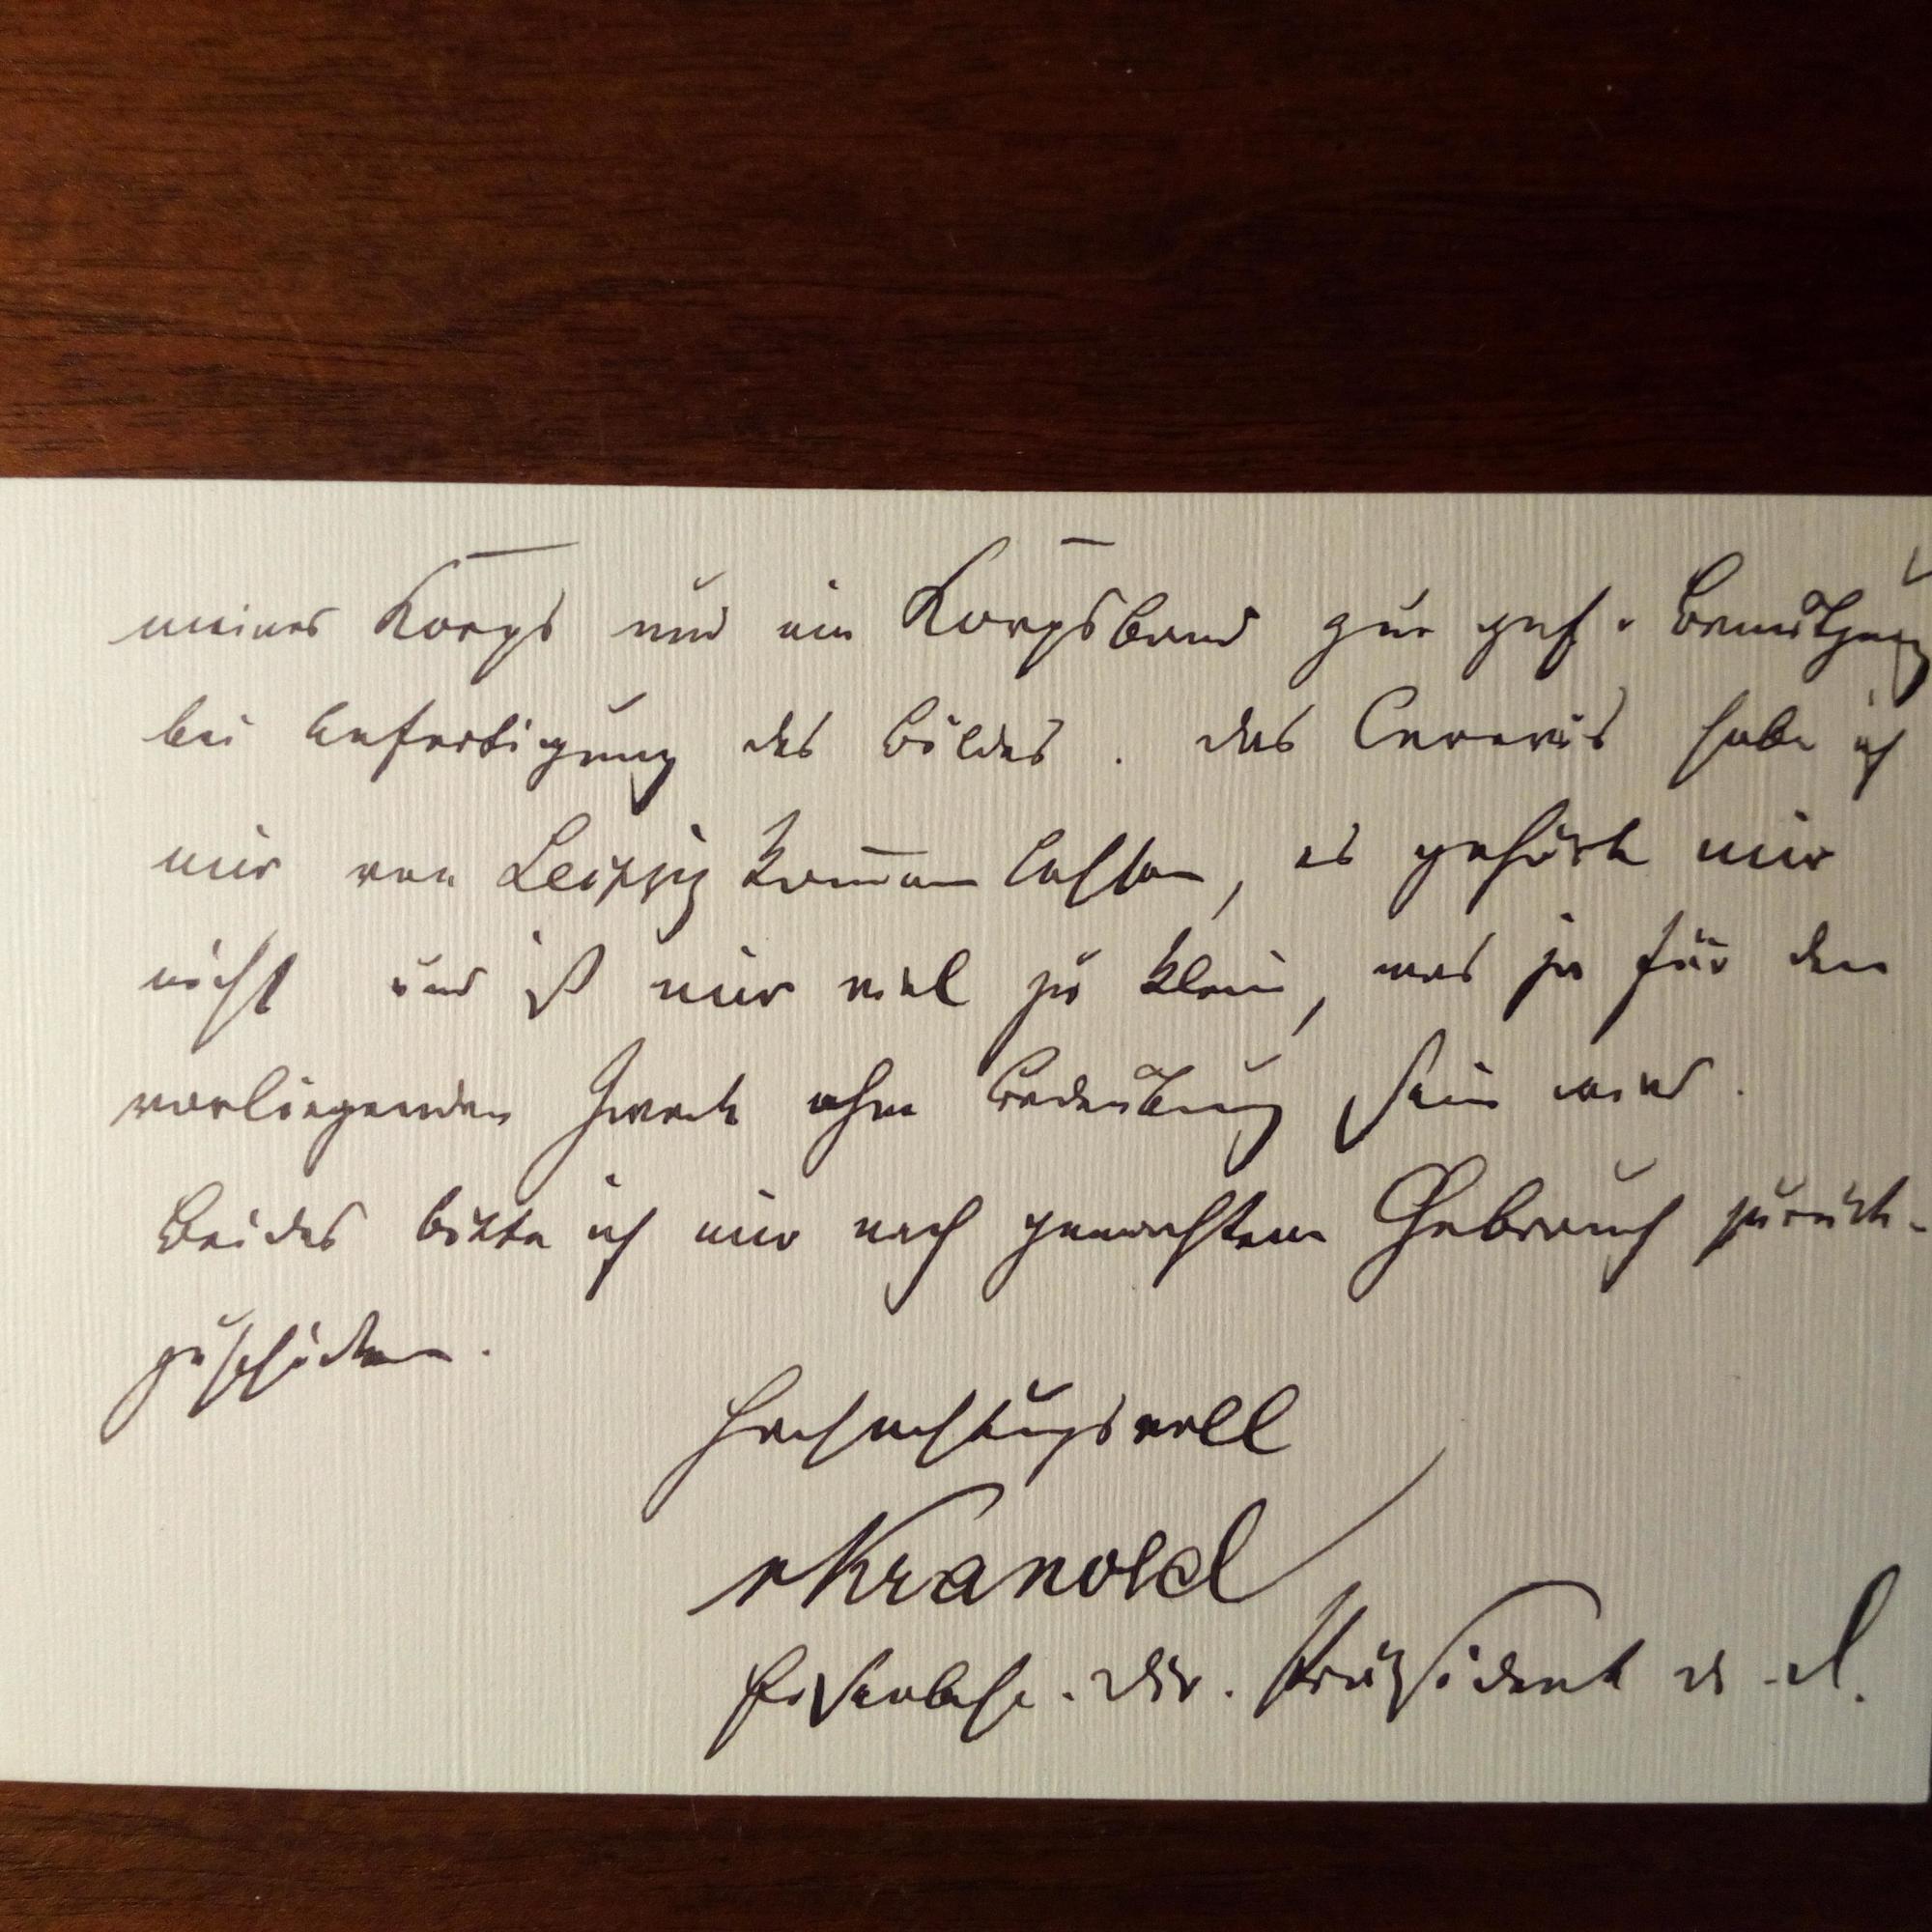 meines Korps und ein Korpsband zur gef. Benutzung
bei Anfertigung des Bildes. Das Cerevis habe ich
mir von Leipzig kommen lassen, es gehört mir
nicht und ist mir viel zu klein, was ja für den
vorliegenden Zweck ohne Bedeutung sein wird.
Beides bitte ich mir nach gemachtem Gebrauch zurück-
zuschicken.
Hochachtungsvoll
vKranold
Eisenbahn. Dir. Präsident